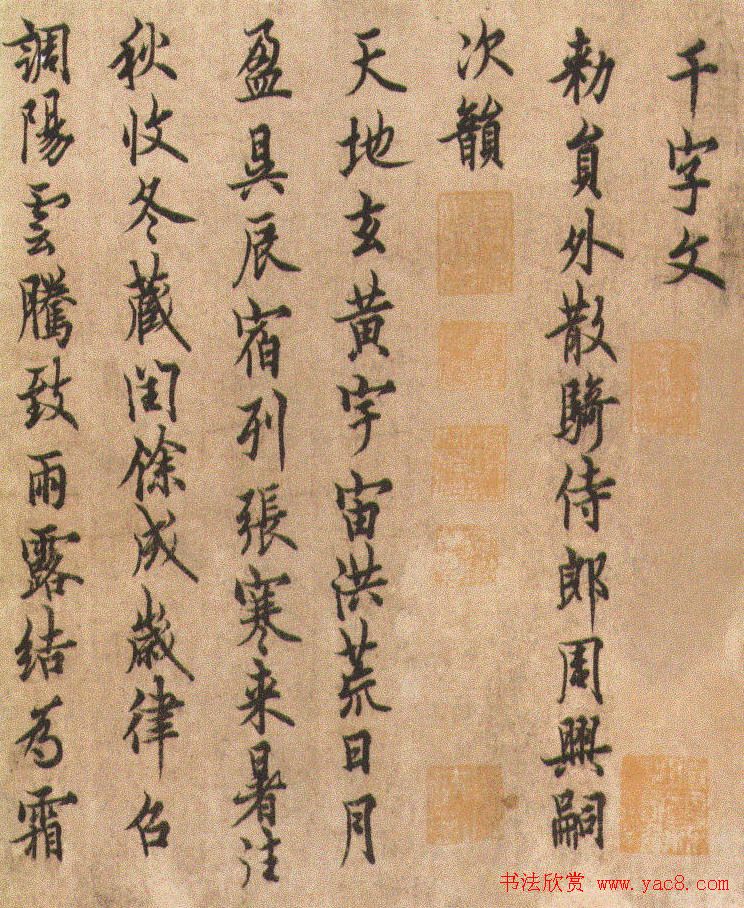 千字文
勑員外散騎侍郎周興嗣
次韻
天地玄黃宇宙洪荒日月
盈昃辰宿列張寒来暑往
秋收冬藏閏餘成歲律召
調陽雲騰致雨露結為霜
书法欣赏 www.yac8.com